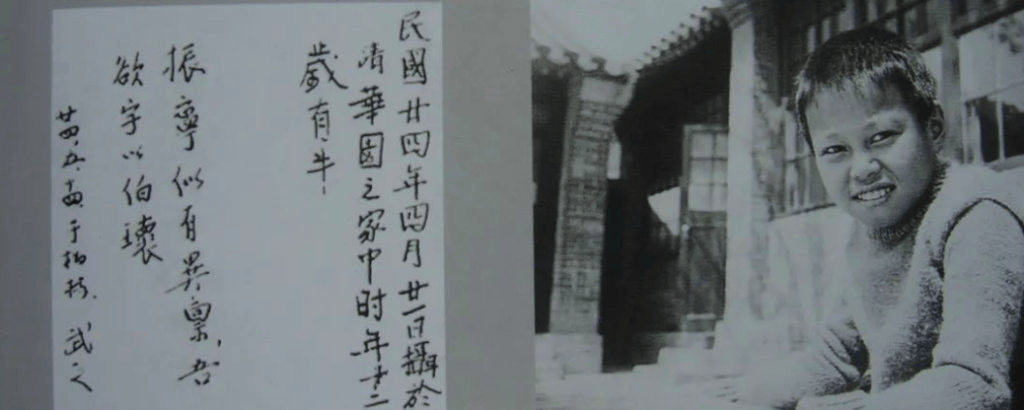 民國廿四年四月廿一日攝於
清華園之家中时年十二
歲有半
振寧似有異禀，吾
欲字以伯瓌
廿四、五、于柏林、武之